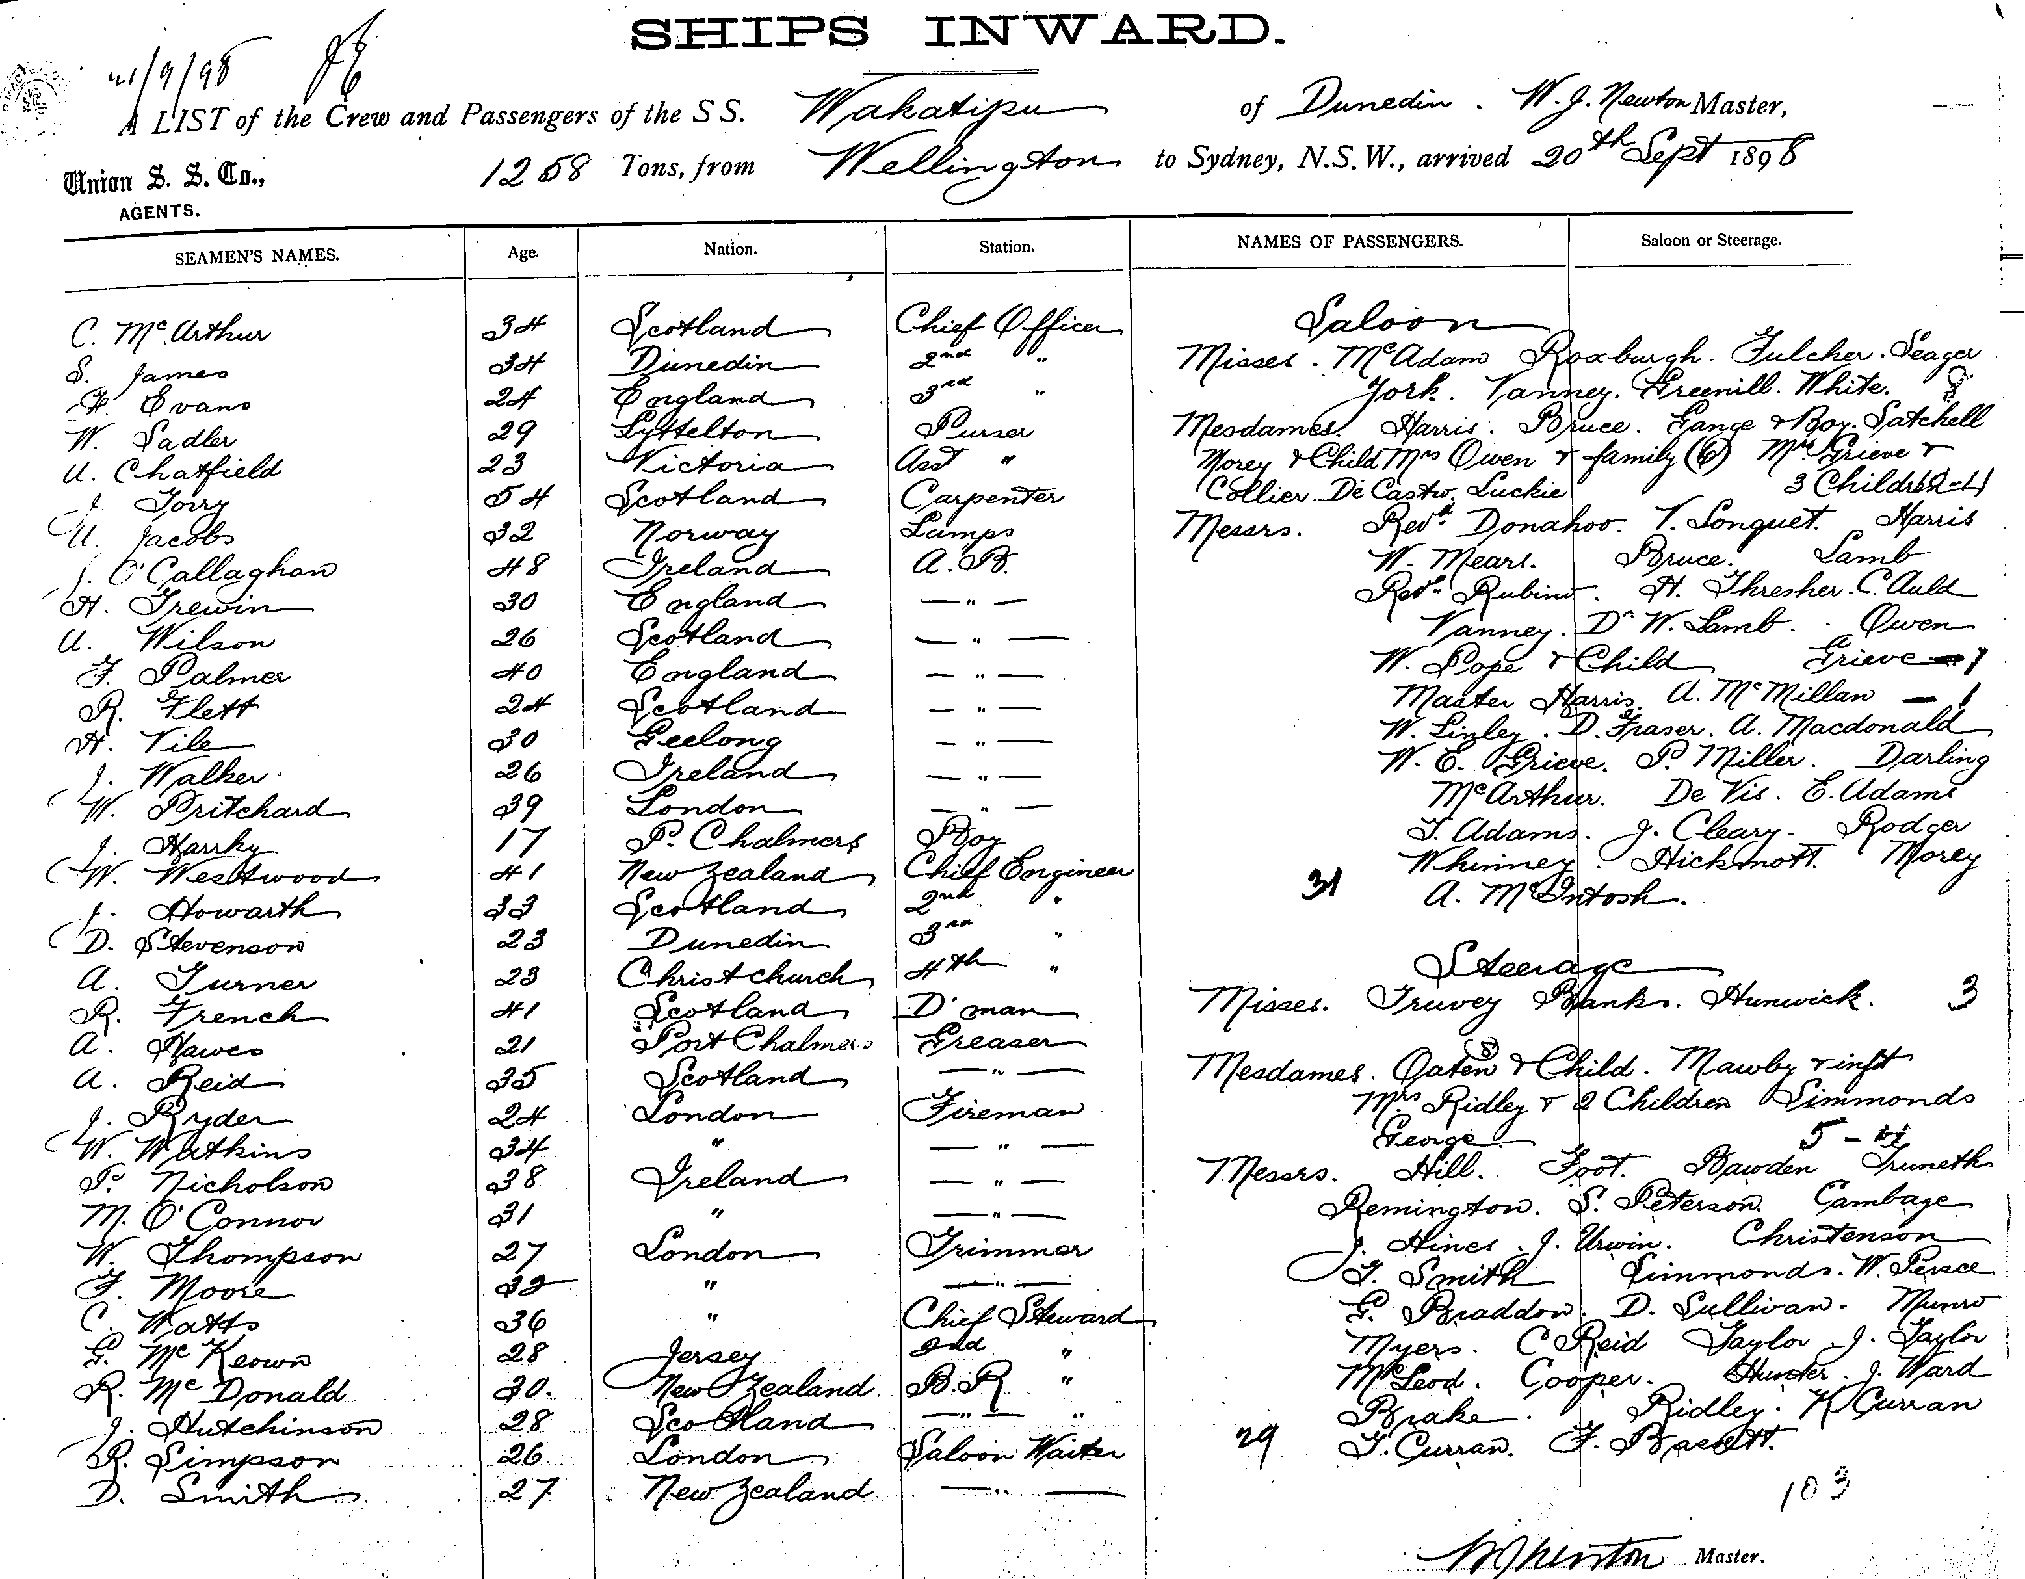 SHIPS INWARD.
21/9/98
A LIST of the Crew and Passengers of the S S. Wakatipu of Dunedin. W. J. Newton Master,
Union S. S. Co., 1258 Tons, from Wellington to Sydney, N.S.W., arrived 20th Sept 1898
AGENTS.
SEAMEN'S NAMES. Age. Nation. Station. NAMES OF PASSENGERS. Saloon or Steerage.
C. McArthur 34 Scotland Chief Officer
S. James 34 Dunedin 2nd "
H. Evans 24 England 3rd "
W. Sadler 29 Lyttelton Purser
A. Chatfield 23 Victoria Asst "
J. Torry 54 Scotland Carpenter
A. Jacobs 32 Norway Lamps
J. O'Callaghan 48 Ireland A. B.
H. Trewin 30 England — " —
A. Wilson 26 Scotland — " —
F. Palmer 40 England — " —
R. Flett 24 Scotland — " —
H. Vile 30 Geelong — " —
J. Walker 26 Ireland — " —
W. Pritchard 39 London — " —
J. 17 P. Chalmers Boy
W. Westwood 41 New Zealand Chief Engineer
J. Howarth 33 Scotland 2nd "
D. Stevenson 23 Dunedin 3rd "
A. Turner 23 Christchurch 4th "
R. French 41 Scotland D'man
A. Hawes 21 Port Chalmers Greaser
A. Reid 35 Scotland — " —
J. Ryder 24 London Fireman
W. Watkins 34 " — " —
P. Nicholson 38 Ireland — " —
M. O'Connor 31 " — " —
W. Thompson 27 London Trimmer
F. Moore 32 " — " —
C. Watts 36 " Chief Steward
G. McKeown 28 Jersey 2nd "
R. McDonald 30. New Zealand B. R "
J. Hutchinson 28 Scotland — " — "
R. Simpson 26 London Saloon Waiter
D. Smith 27 New Zealand — " —
Saloon
Misses. McAdam Roxburgh. Fulcher. Seager
York. Vanney. Greenill. White. 8
Mesdames. Harris. Bruce. Gange & Boy. Satchell
Morey & Child Mrs Owen & family (6) Mrs Grieve &
Collier. De Castro. Luckie 3 Children
Messrs. Revd Donahoo. V. Longuet. Harris
W. Mears. Bruce. Lamb
Revd Rubino. H. Thresher. C. Auld
Vanney. Dr W. Lamb. Owen
W. Pope & Child Grieve — 1
Master Harris. A. McMillan — 1
W. Linley. D. Fraser. A. Macdonald
W. E. Grieve. P. Miller. Darling
McArthur. De Vis. E. Adams
T. Adams. J. Cleary. Rodger
Whinney. Hickmott. Morey
31 A. McIntosh.
Steerage
Misses. Truvey Banks. Hunwick. 3
Mesdames. Oaten & Child. Mawby & inft
Mrs Ridley & 2 Children Simmonds
George 5 -
Messrs. Hill. Foot. Bawden Truneth
Remington. S. Peterson. Cambage
J. Hines. J. Urwin. Christenson
T. Smith Simmonds. W. Perace
G. Braddon. D. Sullivan. Munro
Myers. C Reid Taylor J. Taylor
McLeod. Cooper. Hunter. J. Ward
Brake. Ridley. K Curran
29 T. Curran. F.
103
W J Newton Master.